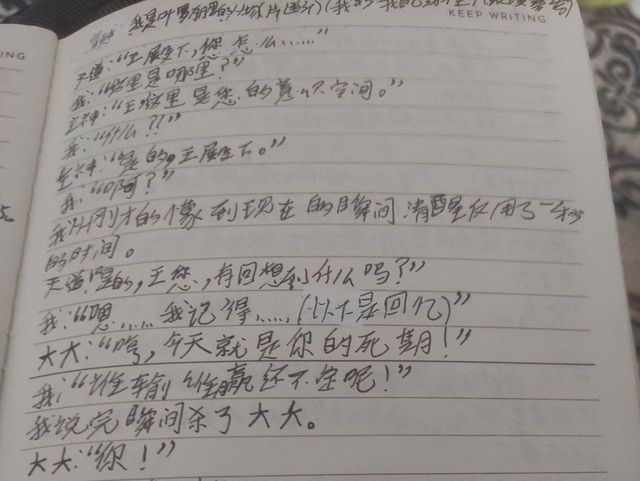 KEEP WRITING
天道："王殿下，你怎么……"
我："这里是哪里？"
主神："王，这里是您的意识空间。"
我："什么??"
主神："是的，王殿下。"
我："啊？"
我从刚才的像到现在的瞬间清醒仅用了一秒
的时间。
天道："是的，王您，有回想到什么吗？"
我："嗯……我记得……(以下是回忆)"
大大："哼，今天就是你的死期！"
我："谁输谁赢还不定呢！"
我说完瞬间杀了大大。
大大："你！"